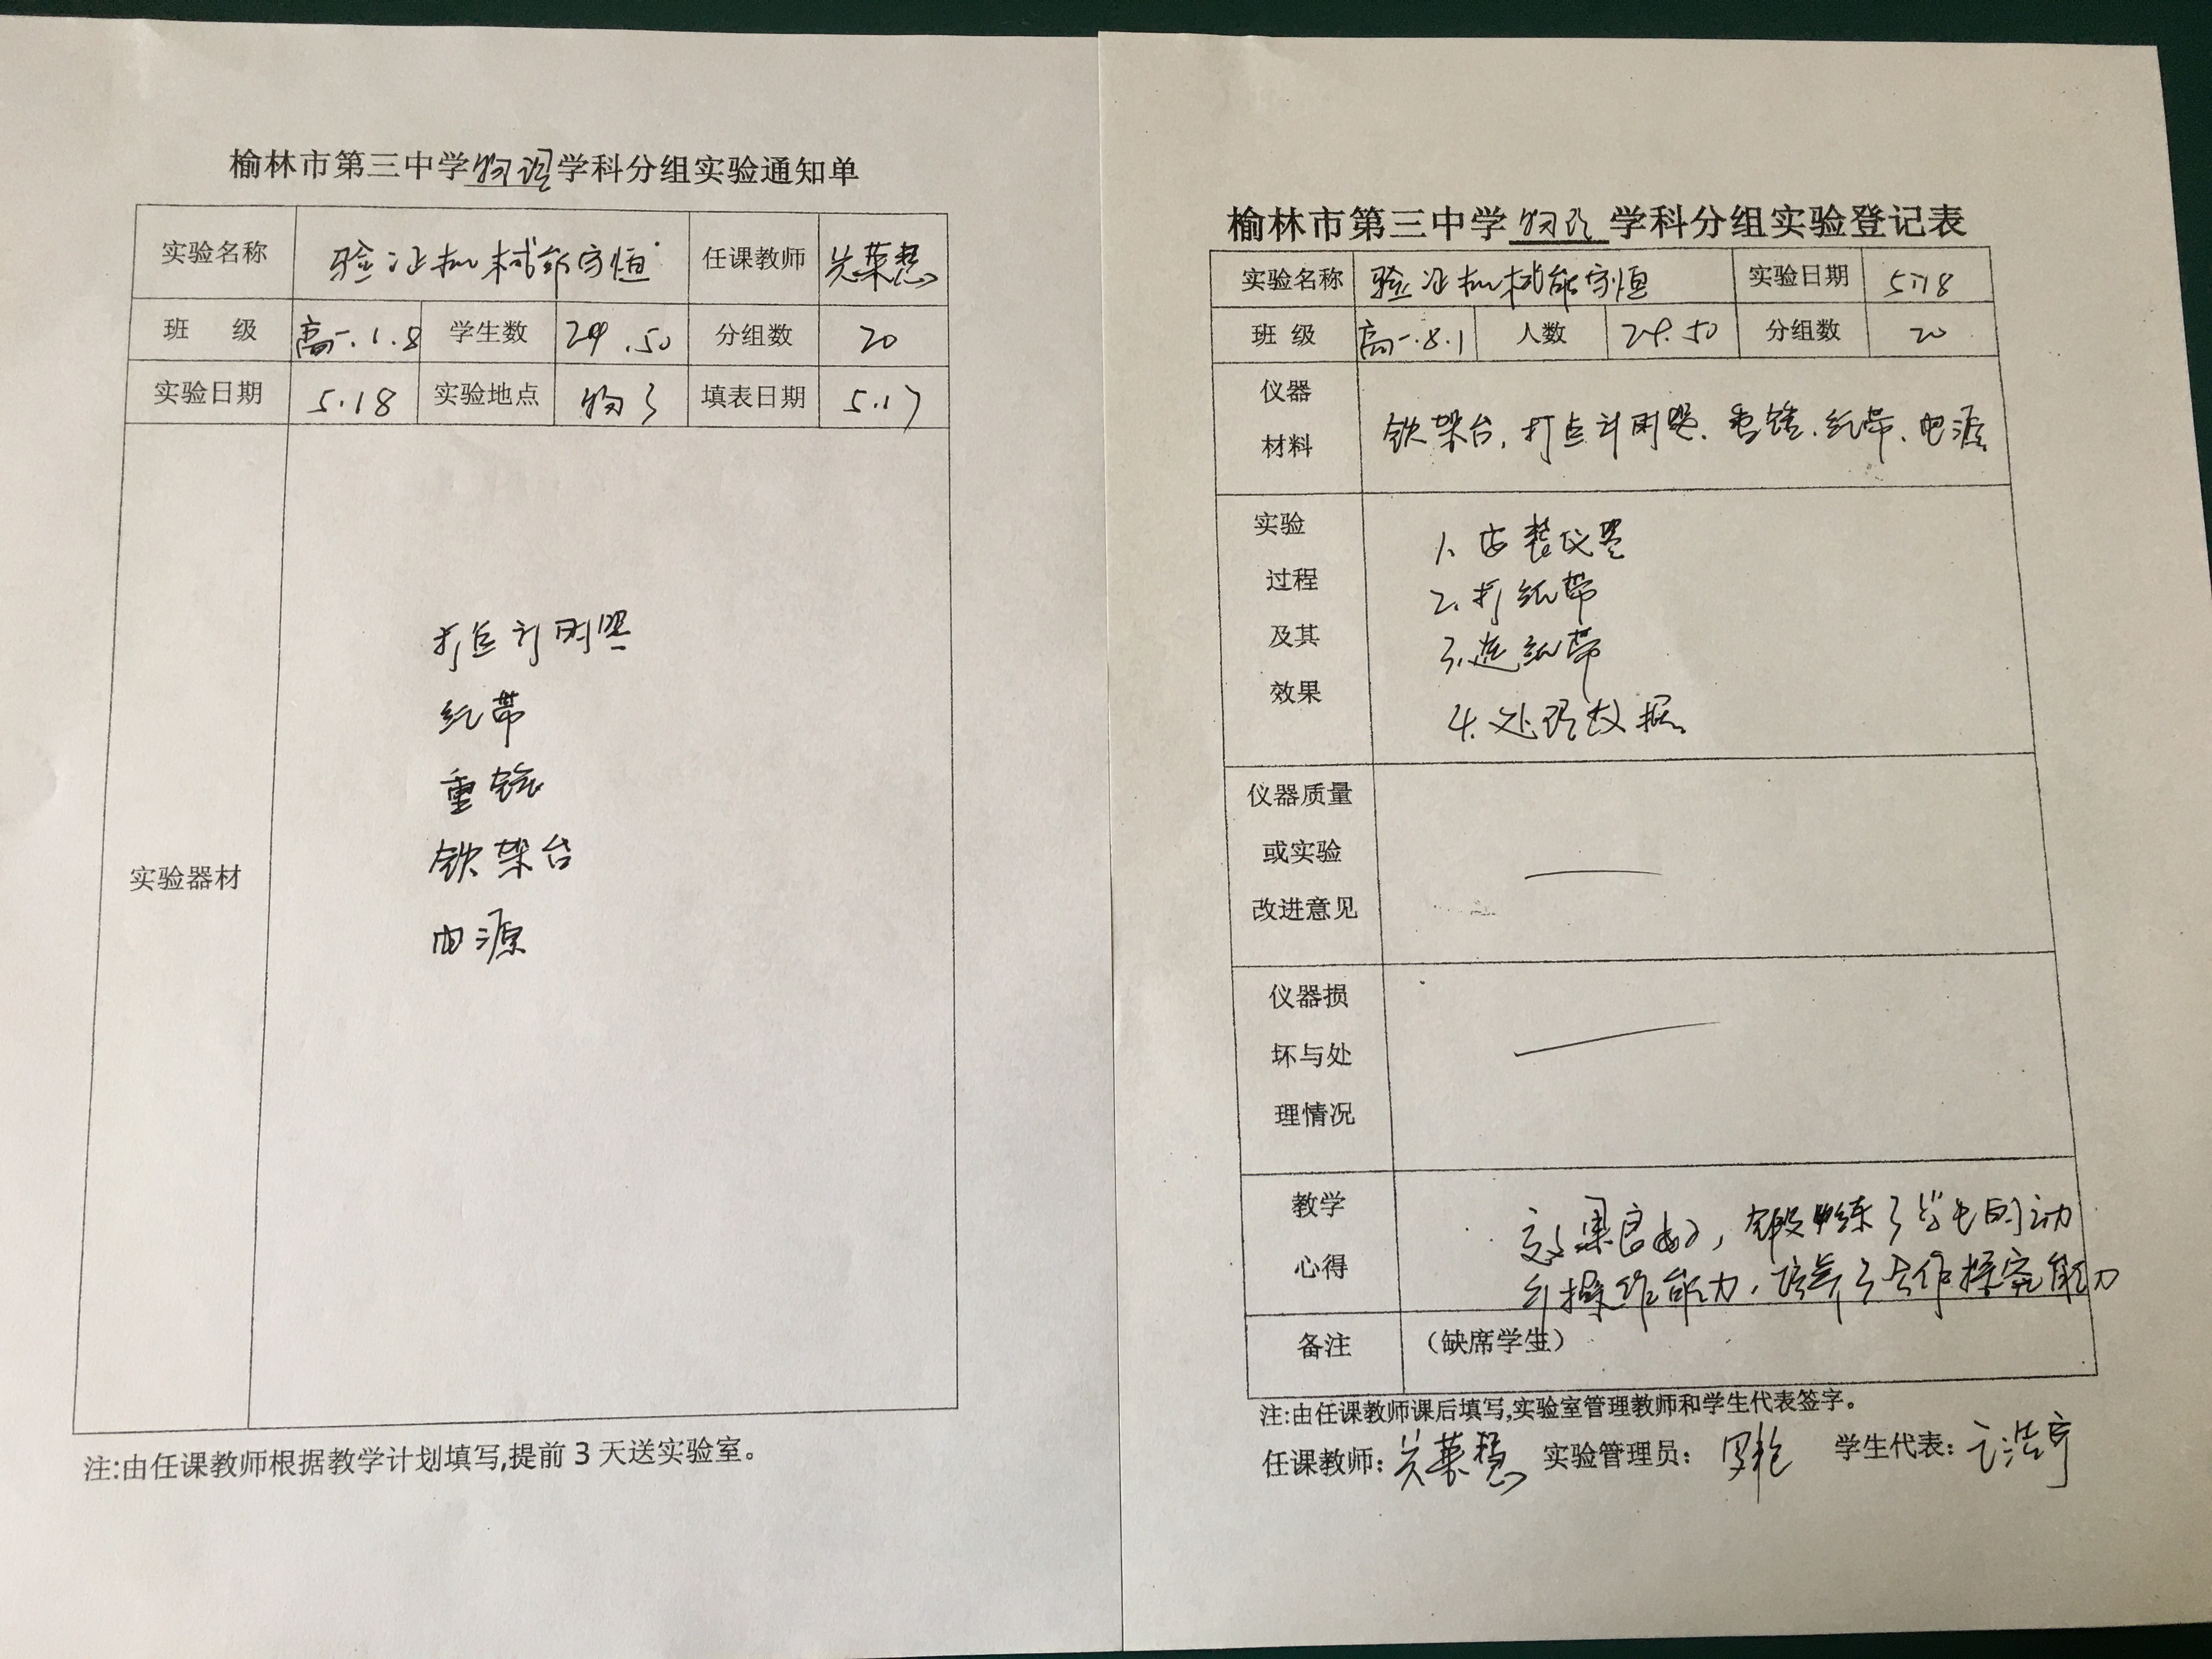 榆林市第三中学物理学科分组实验通知单
实验名称 验证机械能守恒 任课教师
班 级 高一.1.8 学生数 29.50 分组数 20
实验日期 5.18 实验地点 物3 填表日期 5.17
实验器材
打点计时器
纸带
重锤
铁架台
电源
注:由任课教师根据教学计划填写,提前3天送实验室。
榆林市第三中学物理学科分组实验登记表
实验名称 验证机械能守恒 实验日期 5.18
班 级 高一.8.1 人数 29.50 分组数 20
仪器
材料
铁架台、打点计时器、重锤、纸带、电源
实验
过程
及其
效果
1. 安装仪器
2. 打纸带
3. 选纸带
4. 处理数据
仪器质量
或实验
改进意见
仪器损
坏与处
理情况
教学
心得
效果良好,锻炼了学生的动
手操作能力,培养了合作探究能力
备注 (缺席学生)
注:由任课教师课后填写,实验室管理教师和学生代表签字。
任课教师: 实验管理员: 学生代表: